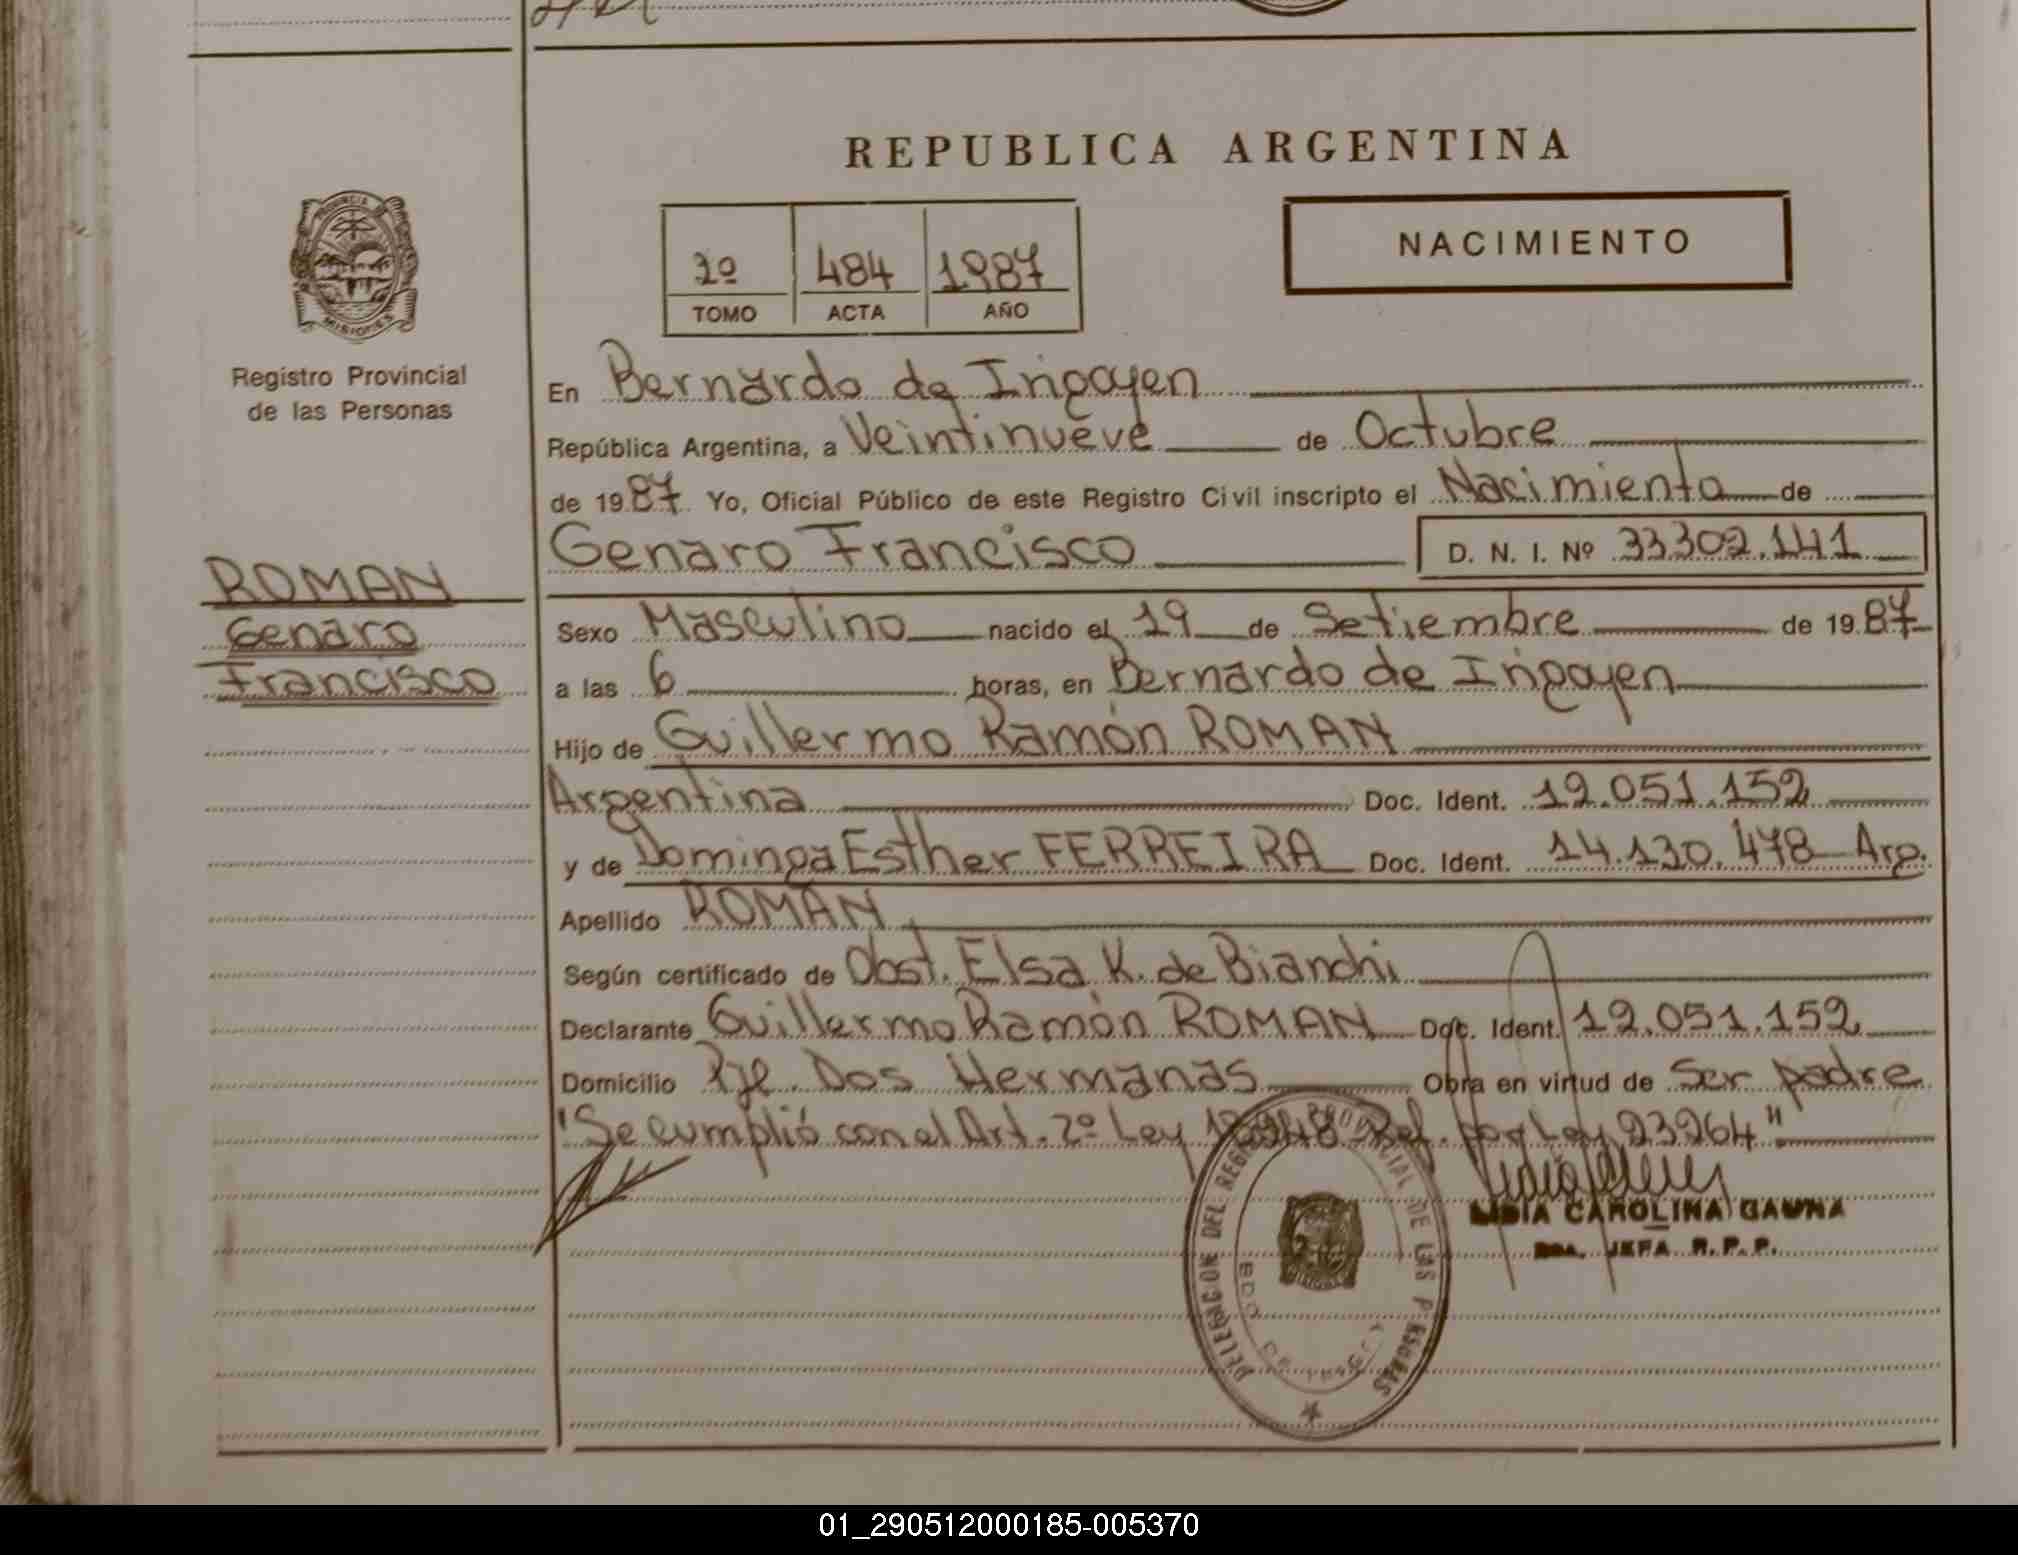 REPUBLICA ARGENTINA
PROVINCIA DE
MISIONES
Registro Provincial
de las Personas
2º 484 1987
TOMO ACTA AÑO
NACIMIENTO
En Bernardo de Irigoyen
República Argentina, a Veintinueve de Octubre
de 1987 Yo, Oficial Público de este Registro Civil inscripto el Nacimiento de
Genaro Francisco D. N. I. Nº 33.302.141
ROMAN
Genaro
Francisco
Sexo Masculino nacido el 19 de Setiembre de 1987
a las 6 horas, en Bernardo de Irigoyen
Hijo de Guillermo Ramón ROMAN
Argentina Doc. Ident. 12.051.152
y de Dominga Esther FERREIRA Doc. Ident. 14.130.478 Arg.
Apellido ROMAN
Según certificado de Obst. Elsa K. de Bianchi
Declarante Guillermo Ramón ROMAN Doc. Ident. 12.051.152
Domicilio Pje. Dos Hermanas Obra en virtud de Ser padre
"Se cumplió con el Art. 2º Ley Ref. por Ley 23264"
LIDIA CAROLINA GAUNA
JEFA R.P.P.
DELEGACION DEL REGISTRO PROVINCIAL DE LAS PERSONAS
BDO DE IRIGOYEN
01_290512000185-005370